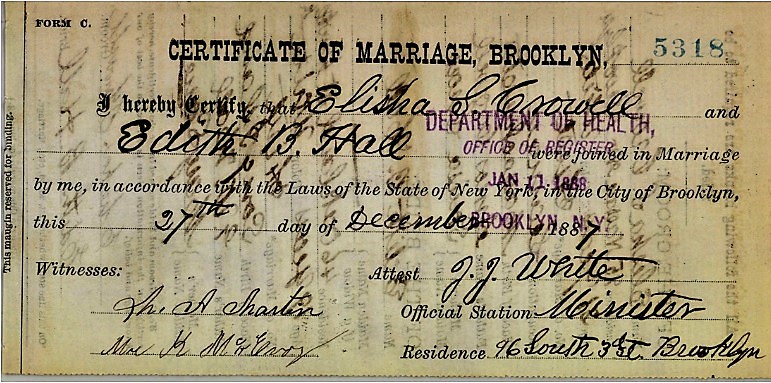 FORM C.
CERTIFICATE OF MARRIAGE, BROOKLYN, 5318
I hereby Certify, that Elisha S Crowell and
Edith B. Hall
DEPARTMENT OF HEALTH,
OFFICE OF REGISTER
were joined in Marriage
by me, in accordance with the Laws of the State of New York, in the City of Brooklyn,
JAN 11 1888
this 27th day of December 1887
BROOKLYN, N.Y.
Witnesses: Attest J. J. White
A Martin Official Station Minister
K McEvoy Residence 96 South 3 St. Brooklyn
This margin reserved for binding.